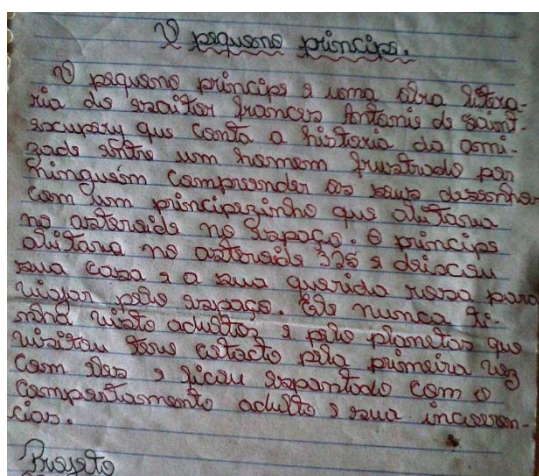 O pequeno principe.
O pequeno principe e uma obra litera-
ria do escritor frances Antonie de Saint-
exupery que conta a historia da ami-
zade entre um homem frustrado por
ninguém compreender os seus desenhos
com um principezinho que
no asteroide no espaço. O principe
no asteroide 325 e deixou
sua casa e a sua querida rosa para
viajar pelo espaço. Ele nunca ti-
nha visto adultos e pelo planetas que
visitou teve cotacto pela primeira vez
com eles e ficou espantado com o
comportasmento adulto e sua incoeren-
cias.